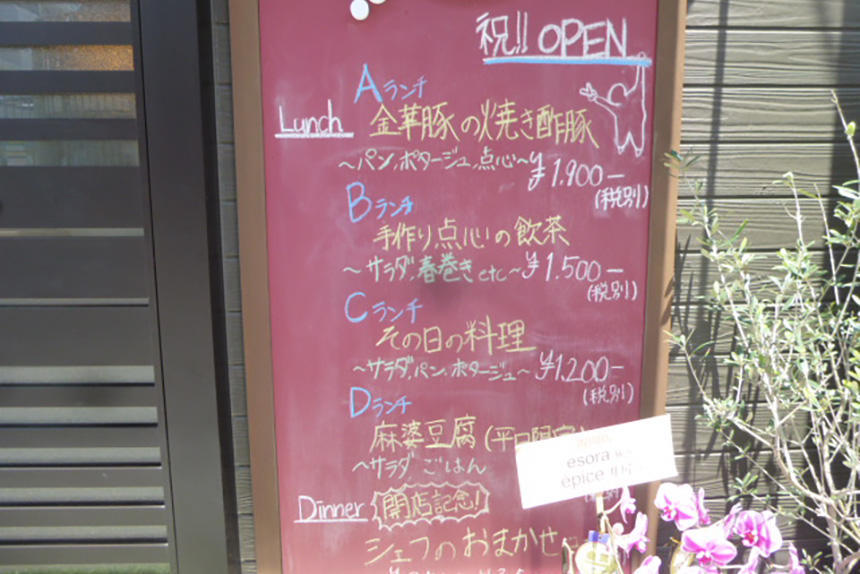 祝!! OPEN
Aランチ
Lunch
金華豚の焼き酢豚
～パン,ポタージュ,点心～ ¥1.900－
(税別)
Bランチ
手作り点心の飲茶
～サラダ,春巻き etc～ ¥1.500－
(税別)
Cランチ
その日の料理
～サラダ,パン,ポタージュ～ ¥1.200－
(税別)
Dランチ
麻婆豆腐 (平日限定)
～サラダ ごはん
esora
épice
Dinner 開店記念!
シェフのおまかせ